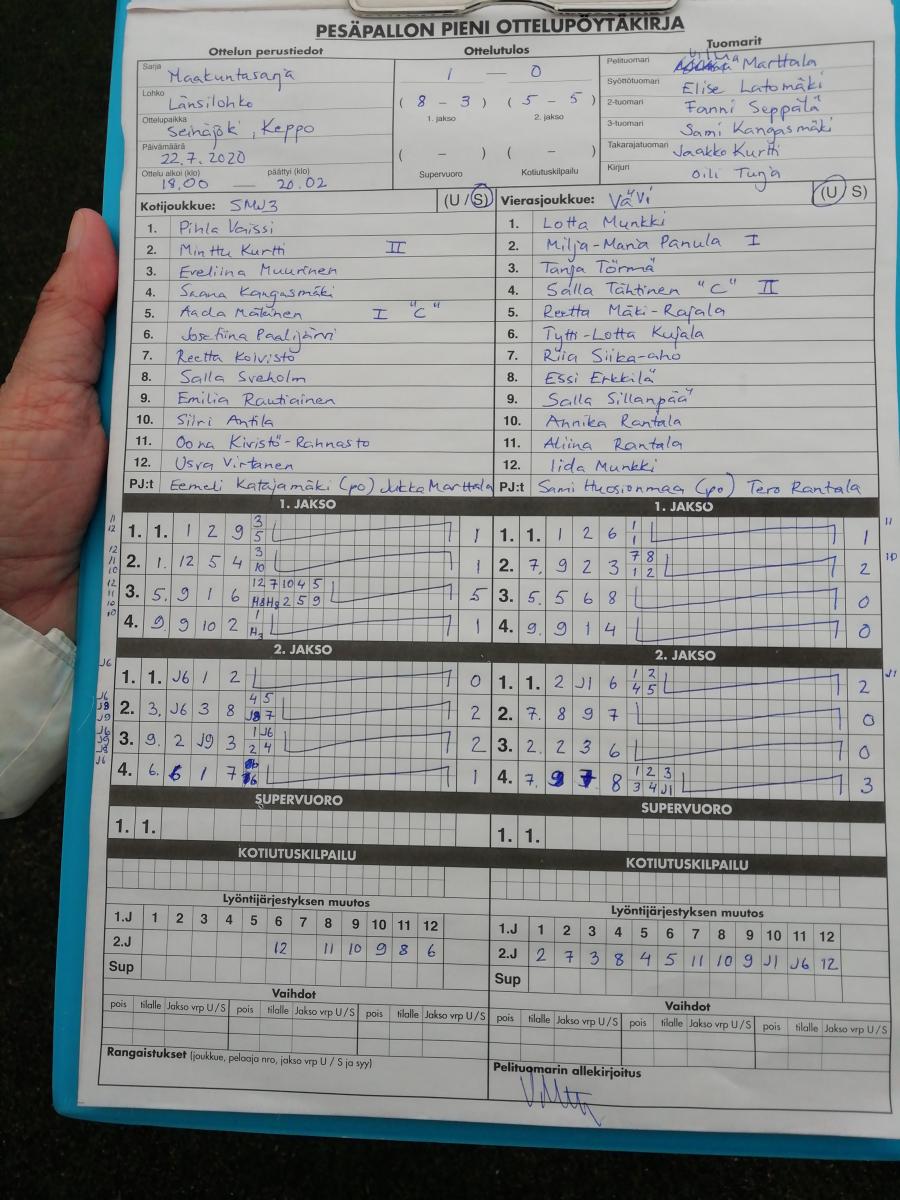 PESÄPALLON PIENI OTTELUPÖYTÄKIRJA
Ottelun perustiedot
Sarja Maakuntasarja
Lohko Länsilohko
Ottelupaikka Seinäjoki, Keppo
Päivämäärä 22.7.2020
Ottelu alkoi (klo) päättyi (klo)
18.00 — 20.02
Ottelutulos
1 — 0
( 8 - 3 ) ( 5 - 5 )
1. jakso 2. jakso
( - ) ( - )
Supervuoro Kotiutuskilpailu
Tuomarit
Pelituomari Marttala
Syöttötuomari Elise Latomäki
2-tuomari Fanni Seppälä
3-tuomari Sami Kangasmäki
Takarajatuomari Jaakko Kurtti
Kirjuri Oili Tuja
Kotijoukkue: SMJ3 (U / S)
1. Pihla Vaissi
2. Minttu Kurtti II
3. Eveliina Muurinen
4. Saana Kangasmäki
5. Aada Mäkinen I "C"
6. Josefiina Paalijärvi
7. Reetta Koivisto
8. Salla Sveholm
9. Emilia Rautiainen
10. Silri Antila
11. Oona Kivistö-Rahnasto
12. Usva Virtanen
PJ:t Eemeli Katajamäki (po) Jukka Marttala
Vierasjoukkue: VäVi (U / S)
1. Lotta Munkki
2. Milja-Maria Panula I
3. Tanja Törmä
4. Salla Tähtinen "C" II
5. Reetta Mäki-Rajala
6. Tytti-Lotta Kujala
7. Riia Siika-aho
8. Essi Erkkilä
9. Salla Sillanpää
10. Annika Rantala
11. Aliina Rantala
12. Iida Munkki
PJ:t Sami Huosionmaa (po) Tero Rantala
1. JAKSO
1. 1. 1 2 9 3 5 1
2. 1. 12 5 4 3 10 1
3. 5. 9 1 6 12 7 10 4 5 H8 H8 2 5 9 5
4. 9. 9 10 2 1 H3 1
1. JAKSO
1. 1. 1 2 6 1 1 1
2. 7. 9 2 3 7 8 1 2 2
3. 5. 5 6 8 0
4. 9. 9 1 4 0
2. JAKSO
1. 1. J6 1 2 0
2. 3. J6 3 8 4 5 J8 7 2
3. 9. 2 J9 3 1 J6 2 4 2
4. 6. 6 1 7 1
2. JAKSO
1. 1. 2 J1 6 1 2 4 5 2
2. 7. 8 9 7 0
3. 2. 2 3 6 0
4. 7. 9 7 8 1 2 3 3 4 J1 3
SUPERVUORO
1. 1.
SUPERVUORO
1. 1.
KOTIUTUSKILPAILU
KOTIUTUSKILPAILU
Lyöntijärjestyksen muutos
1.J 1 2 3 4 5 6 7 8 9 10 11 12
2.J 12 11 10 9 8 6
Sup
Lyöntijärjestyksen muutos
1.J 1 2 3 4 5 6 7 8 9 10 11 12
2.J 2 7 3 8 4 5 11 10 9 J1 J6 12
Sup
Vaihdot
pois tilalle Jakso vrp U / S pois tilalle Jakso vrp U / S pois tilalle Jakso vrp U / S
Vaihdot
pois tilalle Jakso vrp U / S pois tilalle Jakso vrp U / S pois tilalle Jakso vrp U / S
Rangaistukset (joukkue, pelaaja nro, jakso vrp U / S ja syy)
Pelituomarin allekirjoitus